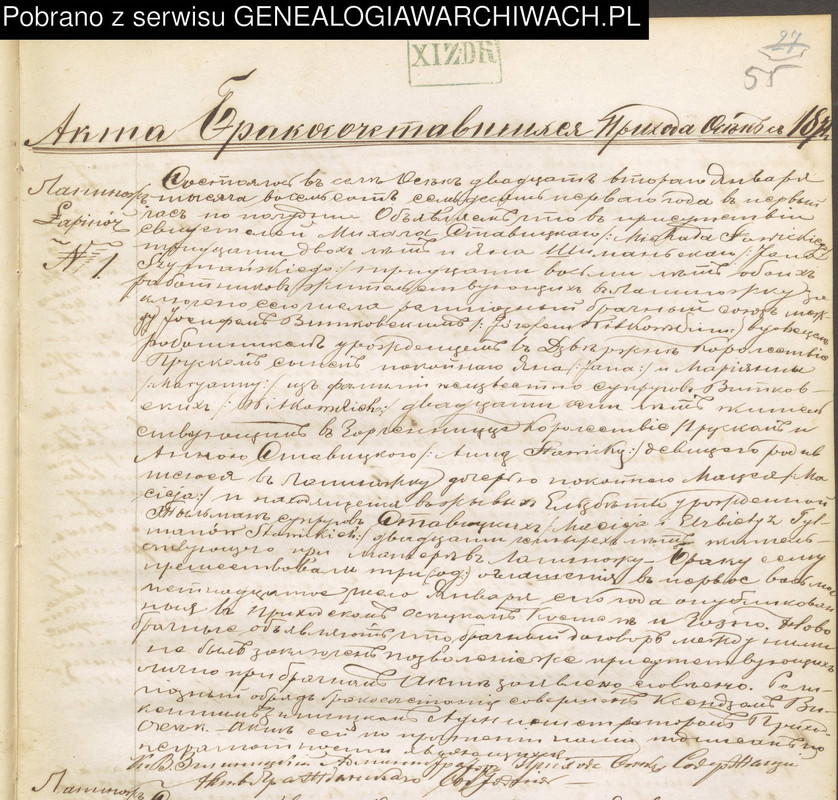 Pobrano z serwisu GENEALOGIAWARCHIWACH.PL
27
55
Акта Бракосочетавшихся Прихода Осѣкъ 187
Лапинож
Łapinóż
№ 1
Состоялось въ селѣ Осѣкъ двадцать втораго Января
тысяча восемьсотъ семьдесятъ перваго года въ первый
часъ по полудни Объявляемъ что въ присутствіи
свидѣтелей Михала Ставицкаго /: Michała Stawickiego
тридцати двухъ лѣтъ и Яна Шиманьскаго /: Jana
Szymańskiego :/ тридцати восьми лѣтъ обоихъ
работниковъ жительствующихъ въ Лапиножку за
ключено сего числа религіозный брачный союзъ меж
ду Іосифомъ Витковскимъ /: Józefem Witkowskim :/ вдовцемъ
работникомъ урожденцемъ въ Королевствѣ
Прускомъ сыномъ покойнаго Яна /: Jana :/ и Маріянны
/: Maryanny :/ изъ фамиліи неизвѣстно супруговъ Витков-
скихъ /: Witkowskich :/ двадцати лѣтъ житель
ствующимъ въ Королевствѣ Прускомъ и
Анною Ставицкою /: Anną Stawicką :/ дѣвицею родив
шеюся въ Лапиножку дочерью покойнаго Мацея /: Ma
cieja :/ и находящейся въ живыхъ Елзбѣты урожденной
Тыльманъ супруговъ Ставицкихъ /: Macieja i Elżbiety z Tyl-
manów Stawickich :/ двадцати четырехъ лѣтъ житель-
ствующею при матери въ Лапиножку. Браку сему
предшествовали три оглашенія въ первое восьмое
пятнадцатое число Января сего года опубликован
ныя въ Приходскомъ Осѣцкомъ Костелѣ и Ново
брачные объявляютъ что брачный договоръ между ними
не былъ заключенъ позволеніе же присутствующихъ
лично при брачномъ Актѣ заявлено словесно. Рели-
гіозный обрядъ бракосочетанія совершенъ Ксендзомъ Ви-
кентіемъ Администраторомъ Прихода
Осѣкъ. Актъ сей по прочтеніи нами подписанъ по
неграмотности являющихся
К. В. Администраторъ Прихода Осѣкъ Содержащій
Акты Гражданскаго Состоянія
Лапинож